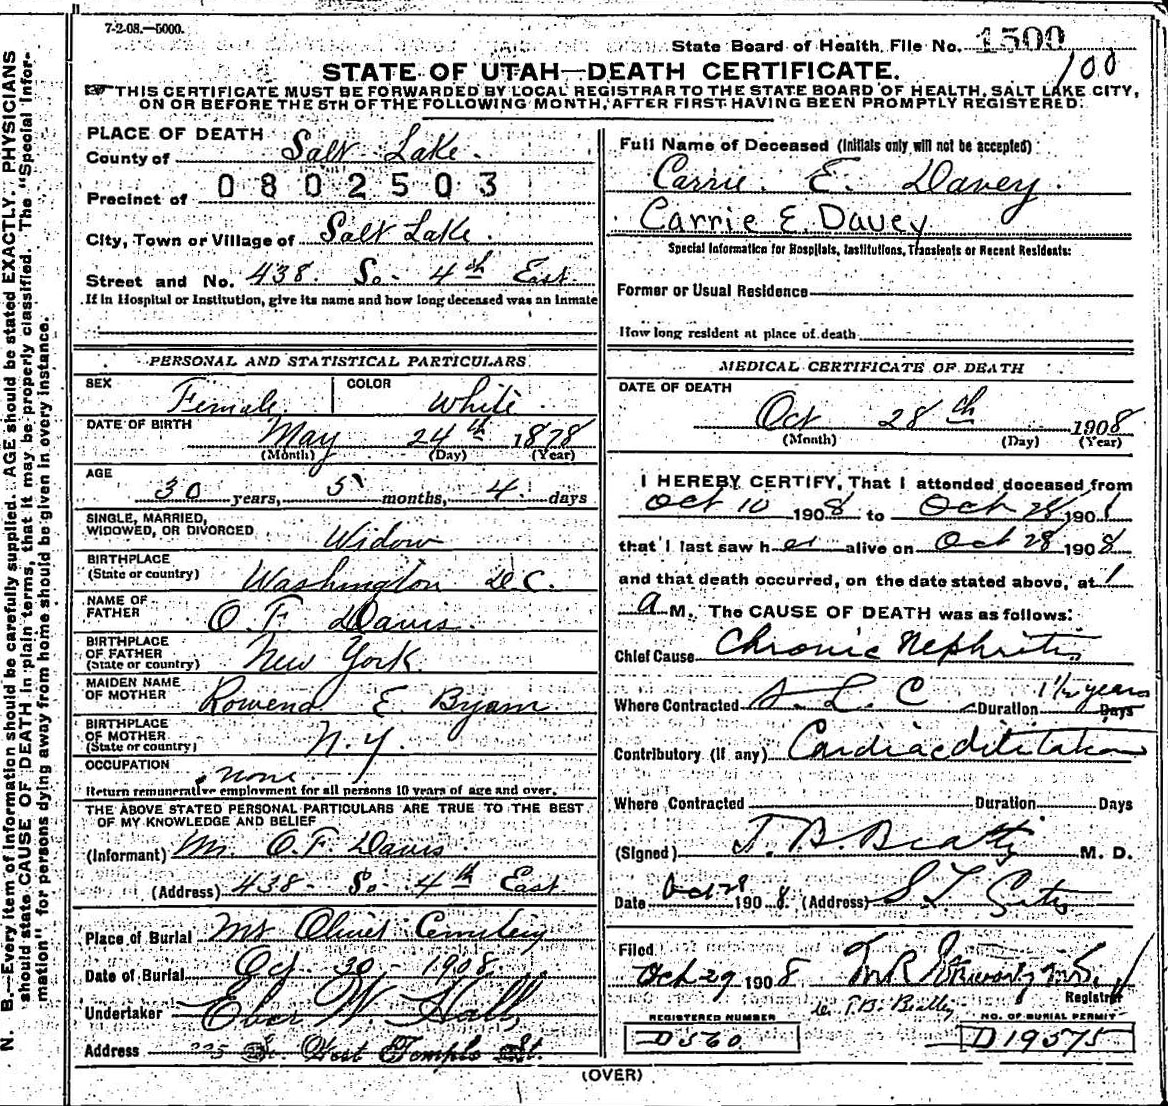 7-2-08.—5000.
State Board of Health File No. 1500
100
STATE OF UTAH—DEATH CERTIFICATE.
THIS CERTIFICATE MUST BE FORWARDED BY LOCAL REGISTRAR TO THE STATE BOARD OF HEALTH, SALT LAKE CITY,
ON OR BEFORE THE 5TH OF THE FOLLOWING MONTH, AFTER FIRST HAVING BEEN PROMPTLY REGISTERED.
N. B.—Every item of information should be carefully supplied. AGE should be stated EXACTLY. PHYSICIANS
should state CAUSE OF DEATH in plain terms, that it may be properly classified. The "Special Infor-
mation" for persons dying away from home should be given in every instance.
PLACE OF DEATH
County of Salt Lake.
0802503
Precinct of
City, Town or Village of Salt Lake.
Street and No. 438. So. 4th East
If in Hospital or Institution, give its name and how long deceased was an inmate
PERSONAL AND STATISTICAL PARTICULARS
SEX Female COLOR White
DATE OF BIRTH May 24th 1878
(Month) (Day) (Year)
AGE 30 years, 5 months, 4 days
SINGLE, MARRIED,
WIDOWED, OR DIVORCED Widow
BIRTHPLACE
(State or country) Washington D.C.
NAME OF
FATHER O F Davis.
BIRTHPLACE
OF FATHER
(State or country) New York
MAIDEN NAME
OF MOTHER Rowena E Byam
BIRTHPLACE
OF MOTHER
(State or country) N.Y.
OCCUPATION none
Return remunerative employment for all persons 10 years of age and over.
THE ABOVE STATED PERSONAL PARTICULARS ARE TRUE TO THE BEST
OF MY KNOWLEDGE AND BELIEF
(Informant) Mr. O.F. Davis.
(Address) 438- So. 4th East
Place of Burial Mt Olivet Cemetery
Date of Burial Oct. 30 - 1908.
Undertaker Eber W Hall,
Address 225 So. West Temple St.
Full Name of Deceased (Initials only will not be accepted)
Carrie. E. Davey.
Carrie E. Davey
Special Information for Hospitals, Institutions, Transients or Recent Residents:
Former or Usual Residence
How long resident at place of death
MEDICAL CERTIFICATE OF DEATH
DATE OF DEATH
Oct 28th 1908
(Month) (Day) (Year)
I HEREBY CERTIFY, That I attended deceased from
Oct 10 1908 to Oct 28 1908
that I last saw her alive on Oct 28 1908
and that death occurred, on the date stated above, at 1
a M. The CAUSE OF DEATH was as follows:
Chief Cause Chronic Nephritis
Where Contracted S. L. C Duration 1½ years Days
Contributory (if any) Cardiac dilitation
Where Contracted Duration Days
(Signed) T. B. Beatty M. D.
Date Oct 28 1908. (Address) S L City
Filed
Oct 29 1908
Registrar
T.B. Beatty
REGISTERED NUMBER NO. OF BURIAL PERMIT
D 560 D 19575
(OVER)